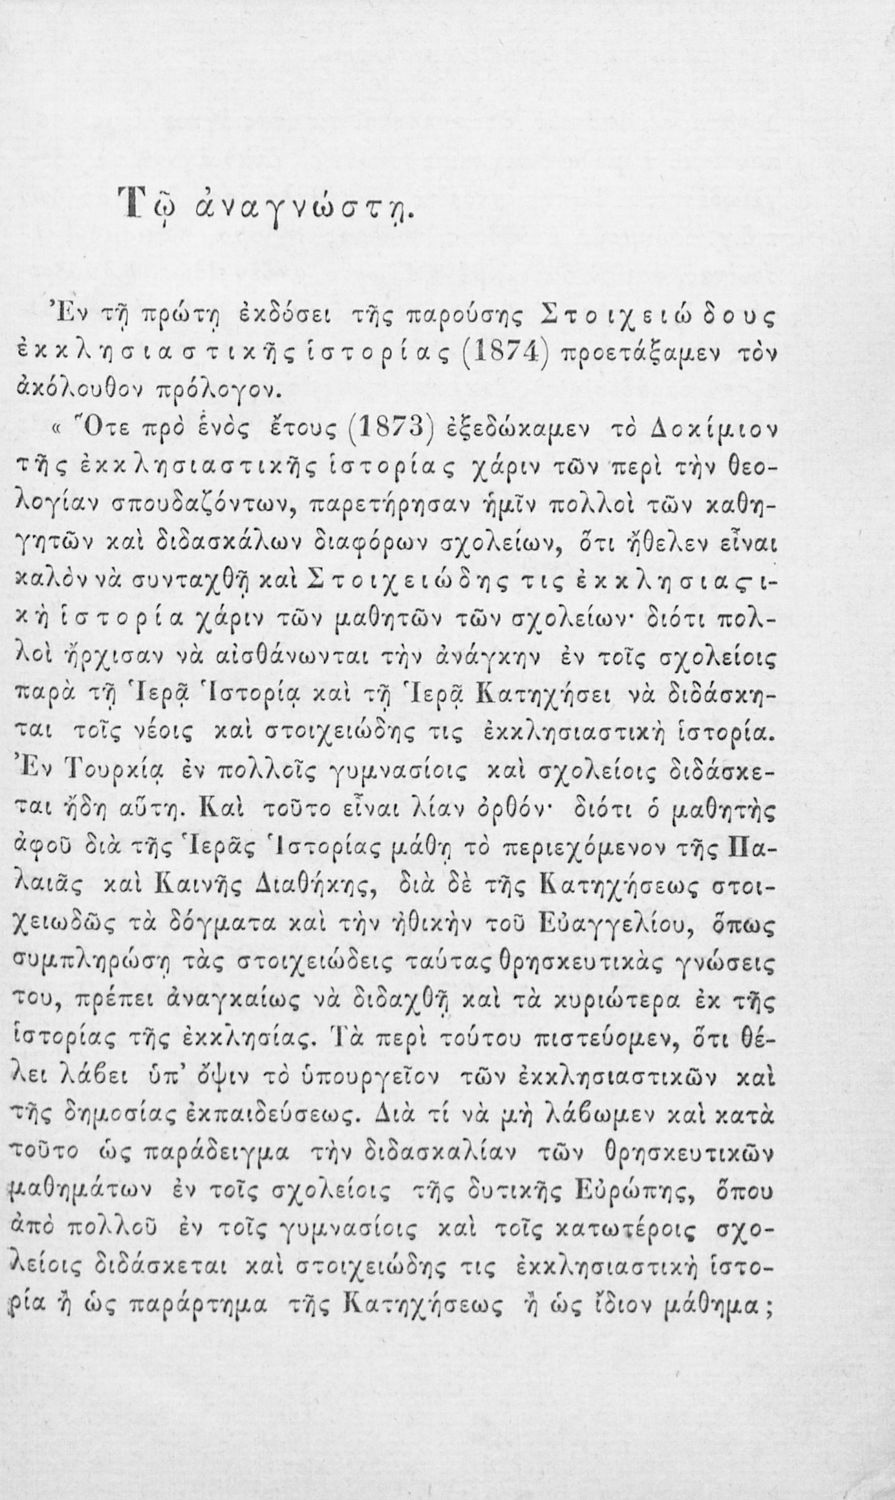 Τῷ ἀναγνώστῃ.
Ἐν τῇ πρώτῃ ἐκδόσει τῆς παρούσης Στοιχειώδους
ἐκκλησιαστικῆς ἱστορίας (1874) προετάξαμεν τὸν
ἀκόλουθον πρόλογον.
« Ὅτε πρὸ ἑνὸς ἔτους (1873) ἐξεδώκαμεν τὸ Δοκίμιον
τῆς ἐκκλησιαστικῆς ἱστορίας χάριν τῶν περὶ τὴν θεο-
λογίαν σπουδαζόντων, παρετήρησαν ἡμῖν πολλοὶ τῶν καθη-
γητῶν καὶ διδασκάλων διαφόρων σχολείων, ὅτι ἤθελεν εἶναι
καλὸν νὰ συνταχθῇ καὶ Στοιχειώδης τις ἐκκλησιαϛι-
κὴ ἱστορία χάριν τῶν μαθητῶν τῶν σχολείων· διότι πολ-
λοὶ ἤρχισαν νὰ αἰσθάνωνται τὴν ἀνάγκην ἐν τοῖς σχολείοις
παρὰ τῇ Ἱερᾷ Ἱστορίᾳ καὶ τῇ Ἱερᾷ Κατηχήσει νὰ διδάσκη-
ται τοῖς νέοις καὶ στοιχειώδης τις ἐκκλησιαστικὴ ἱστορία.
Ἐν Τουρκίᾳ ἐν πολλοῖς γυμνασίοις καὶ σχολείοις διδάσκε-
ται ἤδη αὕτη. Καὶ τοῦτο εἶναι λίαν ὀρθόν· διότι ὁ μαθητὴς
ἀφοῦ διὰ τῆς Ἱερᾶς Ἱστορίας μάθῃ τὸ περιεχόμενον τῆς Πα-
λαιᾶς καὶ Καινῆς Διαθήκης, διὰ δὲ τῆς Κατηχήσεως στοι-
χειωδῶς τὰ δόγματα καὶ τὴν ἠθικὴν τοῦ Εὐαγγελίου, ὅπως
συμπληρώσῃ τὰς στοιχειώδεις ταύτας θρησκευτικὰς γνώσεις
του, πρέπει ἀναγκαίως νὰ διδαχθῇ καὶ τὰ κυριώτερα ἐκ τῆς
ἱστορίας τῆς ἐκκλησίας. Τὰ περὶ τούτου πιστεύομεν, ὅτι θέ-
λει λάβει ὑπ' ὄψιν τὸ ὑπουργεῖον τῶν ἐκκλησιαστικῶν καὶ
τῆς δημοσίας ἐκπαιδεύσεως. Διὰ τί νὰ μὴ λάβωμεν καὶ κατὰ
τοῦτο ὡς παράδειγμα τὴν διδασκαλίαν τῶν θρησκευτικῶν
μαθημάτων ἐν τοῖς σχολείοις τῆς δυτικῆς Εὐρώπης, ὅπου
ἀπὸ πολλοῦ ἐν τοῖς γυμνασίοις καὶ τοῖς κατωτέροις σχο-
λείοις διδάσκεται καὶ στοιχειώδης τις ἐκκλησιαστικὴ ἱστο-
ρία ἢ ὡς παράρτημα τῆς Κατηχήσεως ἢ ὡς ἴδιον μάθημα;